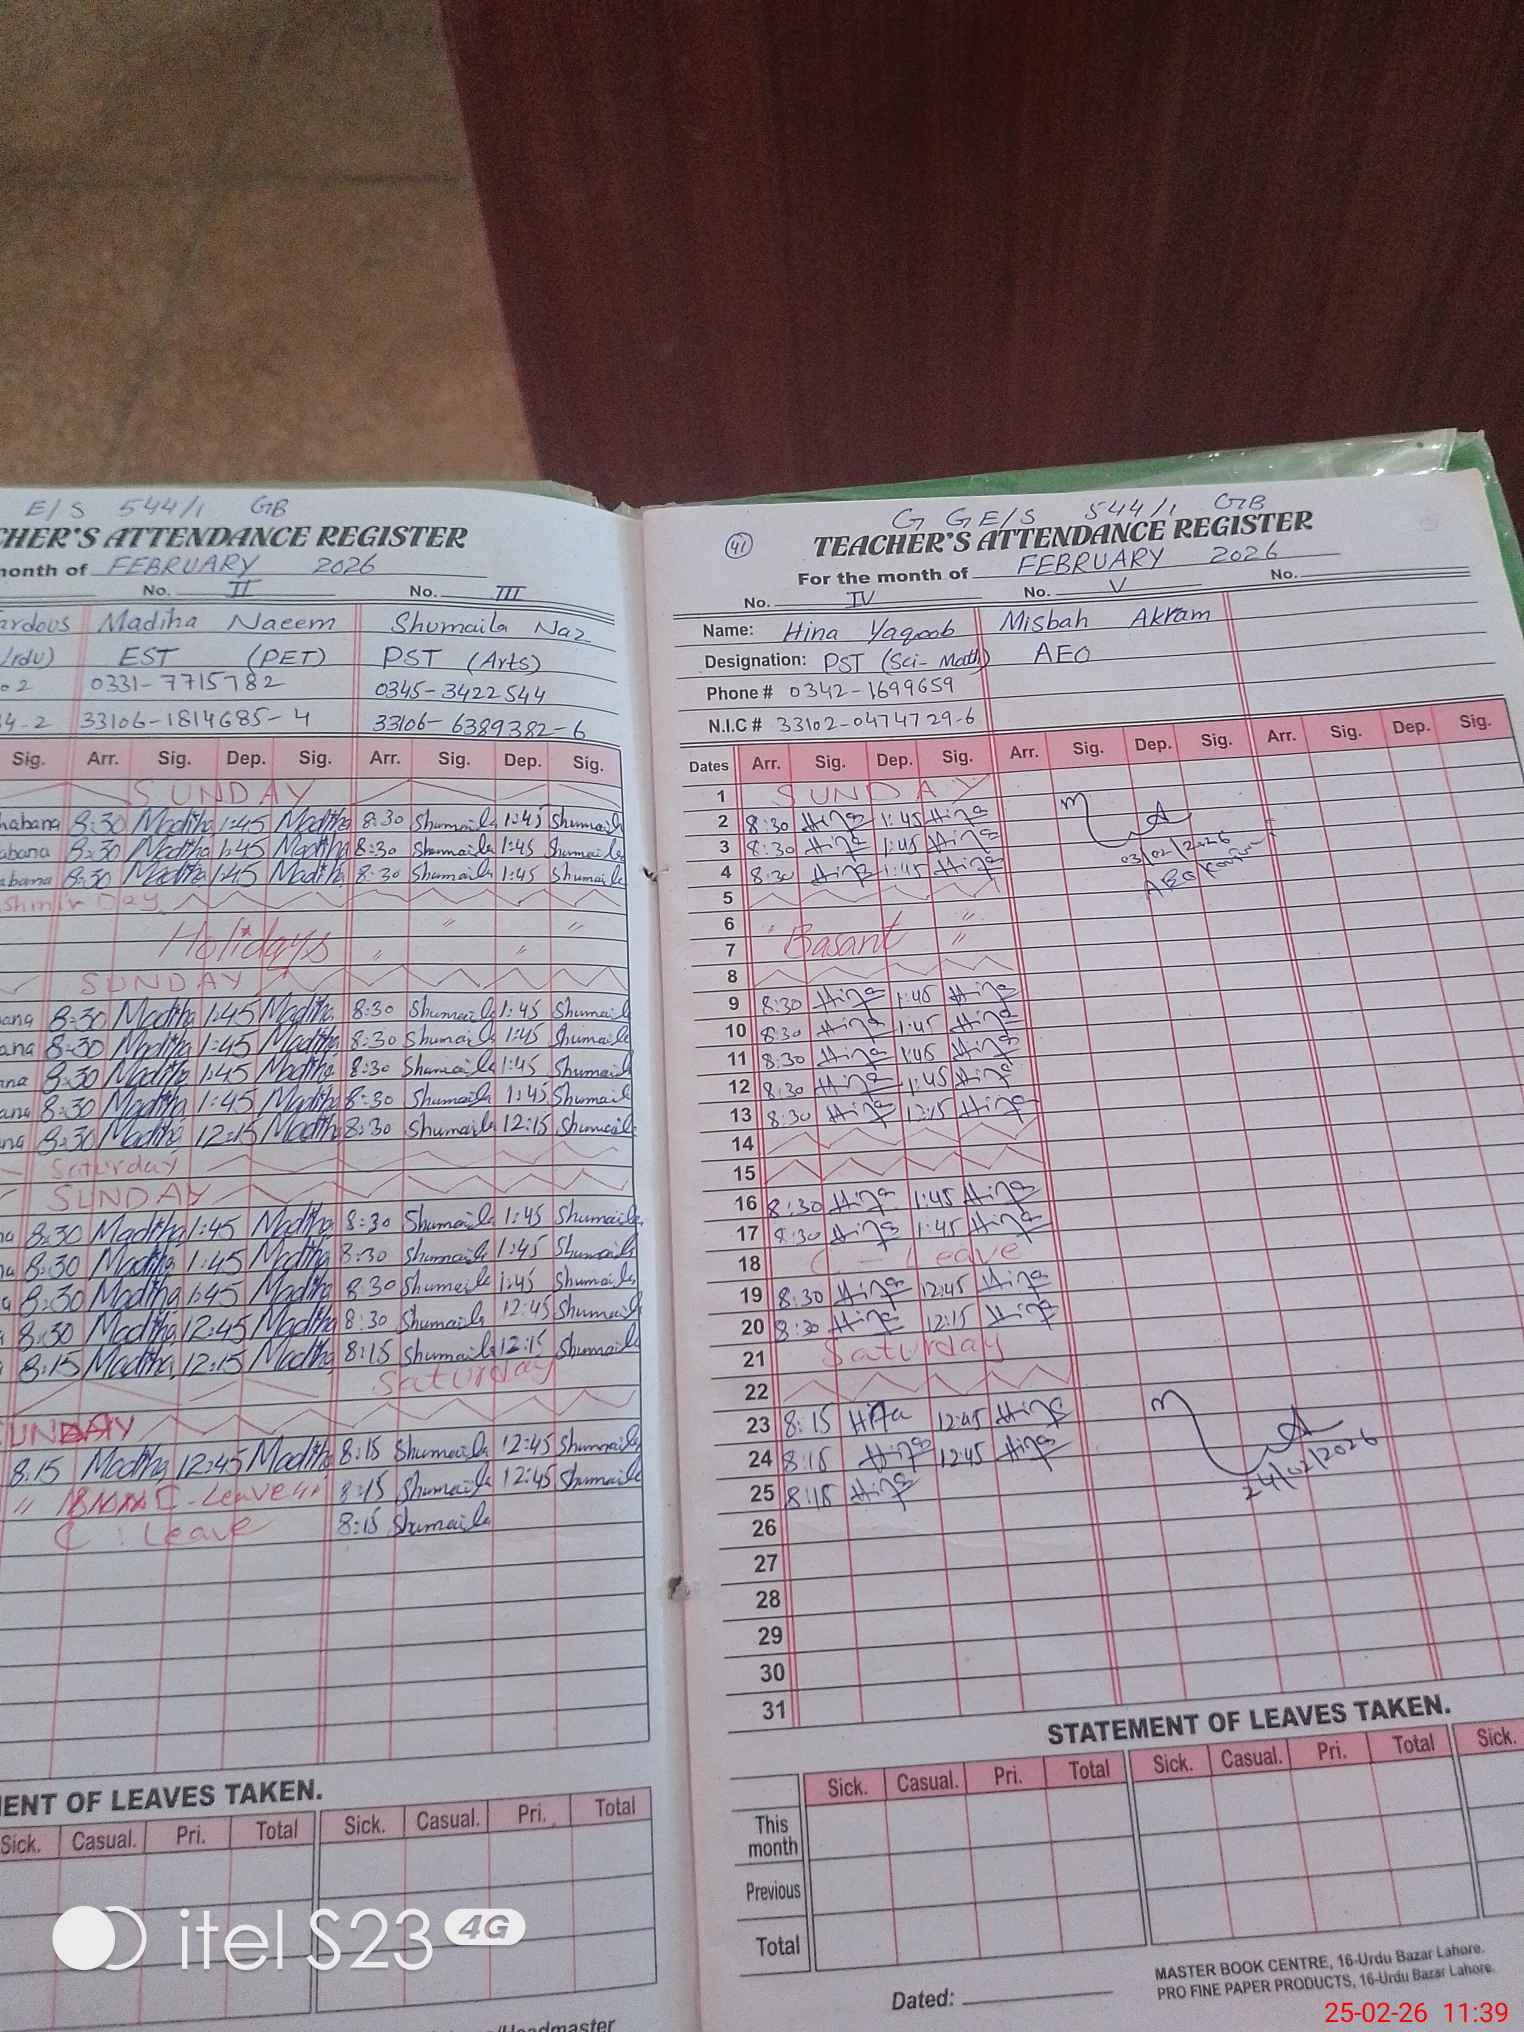 E/S 544/1 GB
CHER'S ATTENDANCE REGISTER
month of FEBRUARY 2026
No. II No. III
ardous Madiha Naeem Shumaila Naz
EST (PET) PST (Arts)
0331-7715782 0345-3422544
4-2 33106-1814685-4 33106-6389382-6
Sig. Arr. Sig. Dep. Sig. Arr. Sig. Dep. Sig.
SUNDAY
habana 8:30 Madiha 1:45 Madiha 8:30 Shumaila 1:45 Shumaila
abana 8:30 Madiha 1:45 Madiha 8:30 Shumaila 1:45 Shumaila
abana 8:30 Madiha 1:45 Madiha 8:30 Shumaila 1:45 Shumaila
shmir Day
Holidays " "
" "
SUNDAY
ana 8:30 Madiha 1:45 Madiha 8:30 Shumaila 1:45 Shumaila
ana 8:30 Madiha 1:45 Madiha 8:30 Shumaila 1:45 Shumaila
ana 8:30 Madiha 1:45 Madiha 8:30 Shumaila 1:45 Shumaila
ana 8:30 Madiha 1:45 Madiha 8:30 Shumaila 1:45 Shumaila
na 8:30 Madiha 12:15 Madiha 8:30 Shumaila 12:15 Shumaila
Saturday
SUNDAY
na 8:30 Madiha 1:45 Madiha 8:30 Shumaila 1:45 Shumaila
a 8:30 Madiha 1:45 Madiha 8:30 Shumaila 1:45 Shumaila
a 8:30 Madiha 1:45 Madiha 8:30 Shumaila 1:45 Shumaila
8:30 Madiha 12:45 Madiha 8:30 Shumaila 12:45 Shumaila
8:15 Madiha 12:15 Madiha 8:15 Shumaila 12:15 Shumaila
Saturday
UNDAY
8:15 Madiha 12:45 Madiha 8:15 Shumaila 12:45 Shumaila
" C-Leave 8:15 Shumaila 12:45 Shumaila
C. Leave 8:15 Shumaila
MENT OF LEAVES TAKEN.
Sick. Casual. Pri. Total Sick. Casual. Pri. Total
/Headmaster
itel S23 4G
G GE/S 544/1 GB
41 TEACHER'S ATTENDANCE REGISTER
For the month of FEBRUARY 2026
No. IV No. V No.
Name: Hina Yaqoob Misbah Akram
Designation: PST (Sci-Math) AEO
Phone # 0342-1699659
N.I.C # 33102-0474729-6
Dates Arr. Sig. Dep. Sig. Arr. Sig. Dep. Sig. Arr. Sig. Dep. Sig.
1 SUNDAY
2 8:30 Hina 1:45 Hina
3 8:30 Hina 1:45 Hina 03/02/2026
4 8:30 Hina 1:45 Hina AEO
5
6 " "
7 Basant "
8
9 8:30 Hina 1:45 Hina
10 8:30 Hina 1:45 Hina
11 8:30 Hina 1:45 Hina
12 8:30 Hina 1:45 Hina
13 8:30 Hina 12:15 Hina
14
15
16 8:30 Hina 1:45 Hina
17 8:30 Hina 1:45 Hina
18 C - Leave
19 8:30 Hina 12:45 Hina
20 8:30 Hina 12:15 Hina
21 Saturday
22
23 8:15 Hina 12:45 Hina
24 8:15 Hina 12:45 Hina 24/02/2026
25 8:15 Hina
26
27
28
29
30
31
STATEMENT OF LEAVES TAKEN.
Sick. Casual. Pri. Total Sick. Casual. Pri. Total Sick.
This month
Previous
Total
MASTER BOOK CENTRE, 16-Urdu Bazar Lahore.
PRO FINE PAPER PRODUCTS, 16-Urdu Bazar Lahore.
Dated:
25-02-26 11:39